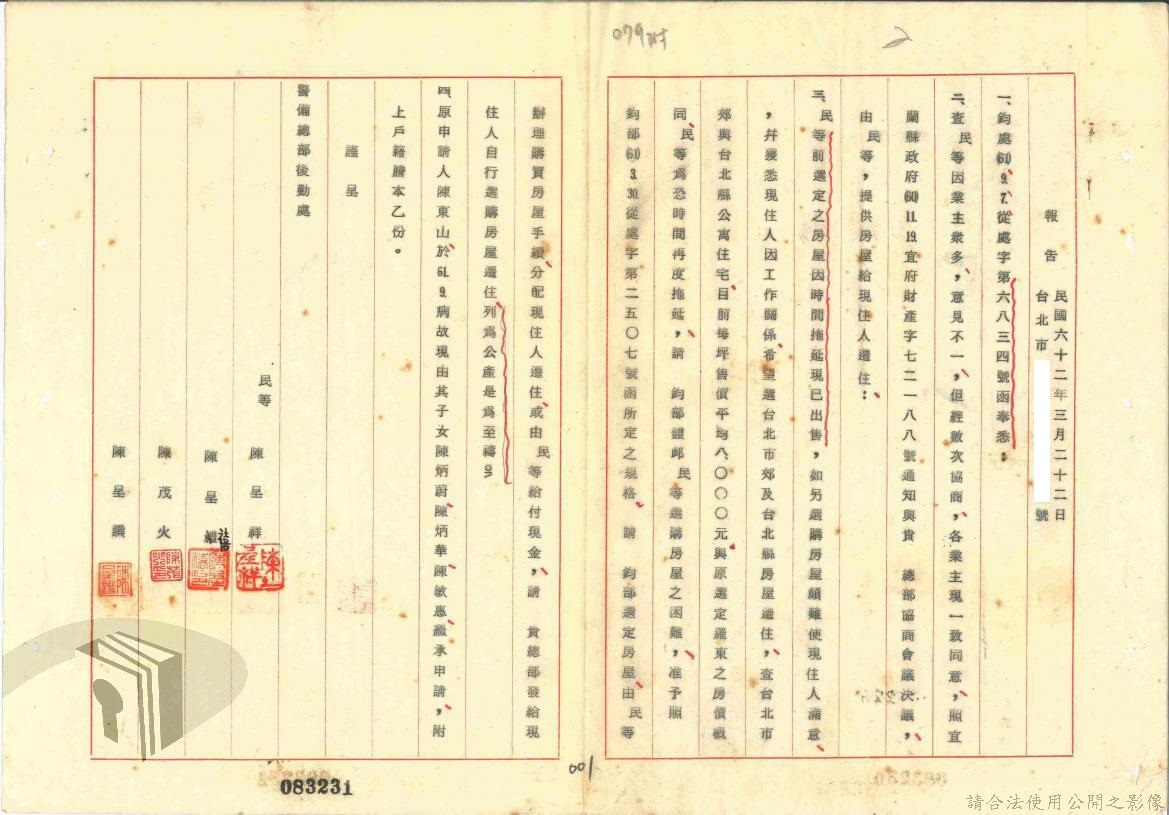 079附
2
報告 民國六十二年三月二十二日
台北市 號
一、鈞處(61)9.7.從處字第六八三四號函奉悉：
二、查民等因業主衆多，意見不一，但經數次協商，各業主現一致同意，照宜
蘭縣政府(60)11.19.宜府財產字七二一八八號通知與貴 總部協商會議決議，
由民等，提供房屋給現住人遷住：
三、民等前選定之房屋因時間拖延現已出售，如另選購房屋頗難使現住人滿意
，幷獲悉現住人因工作關係希望選台北市郊及台北縣房屋遷住，查台北市
郊與台北縣公寓住宅目前每坪售價平均八、〇〇〇元與原選定羅東之房價概
同、民等爲恐時間再度拖延，請 鈞部體邮民等選購房屋之困難，准予照
鈞部(61)3.30.從處字第二五〇七號函所定之規格、請 鈞部選定房屋、由民等
辦理購買房屋手續分配現住人遷住、或由民等給付現金，請 貴總部發給現
住人自行選購房屋遷住列爲公產是爲至禱。
四、原申請人陳東山於61.9.病故現由其子女陳炳蔚、陳炳華、陳敏惠、繼承申請，附
上戶籍謄本乙份。
謹呈
警備總部後勤處
民等 陳呈祥
陳呈
陳茂火
陳呈
083231
001
請合法使用公開之影像